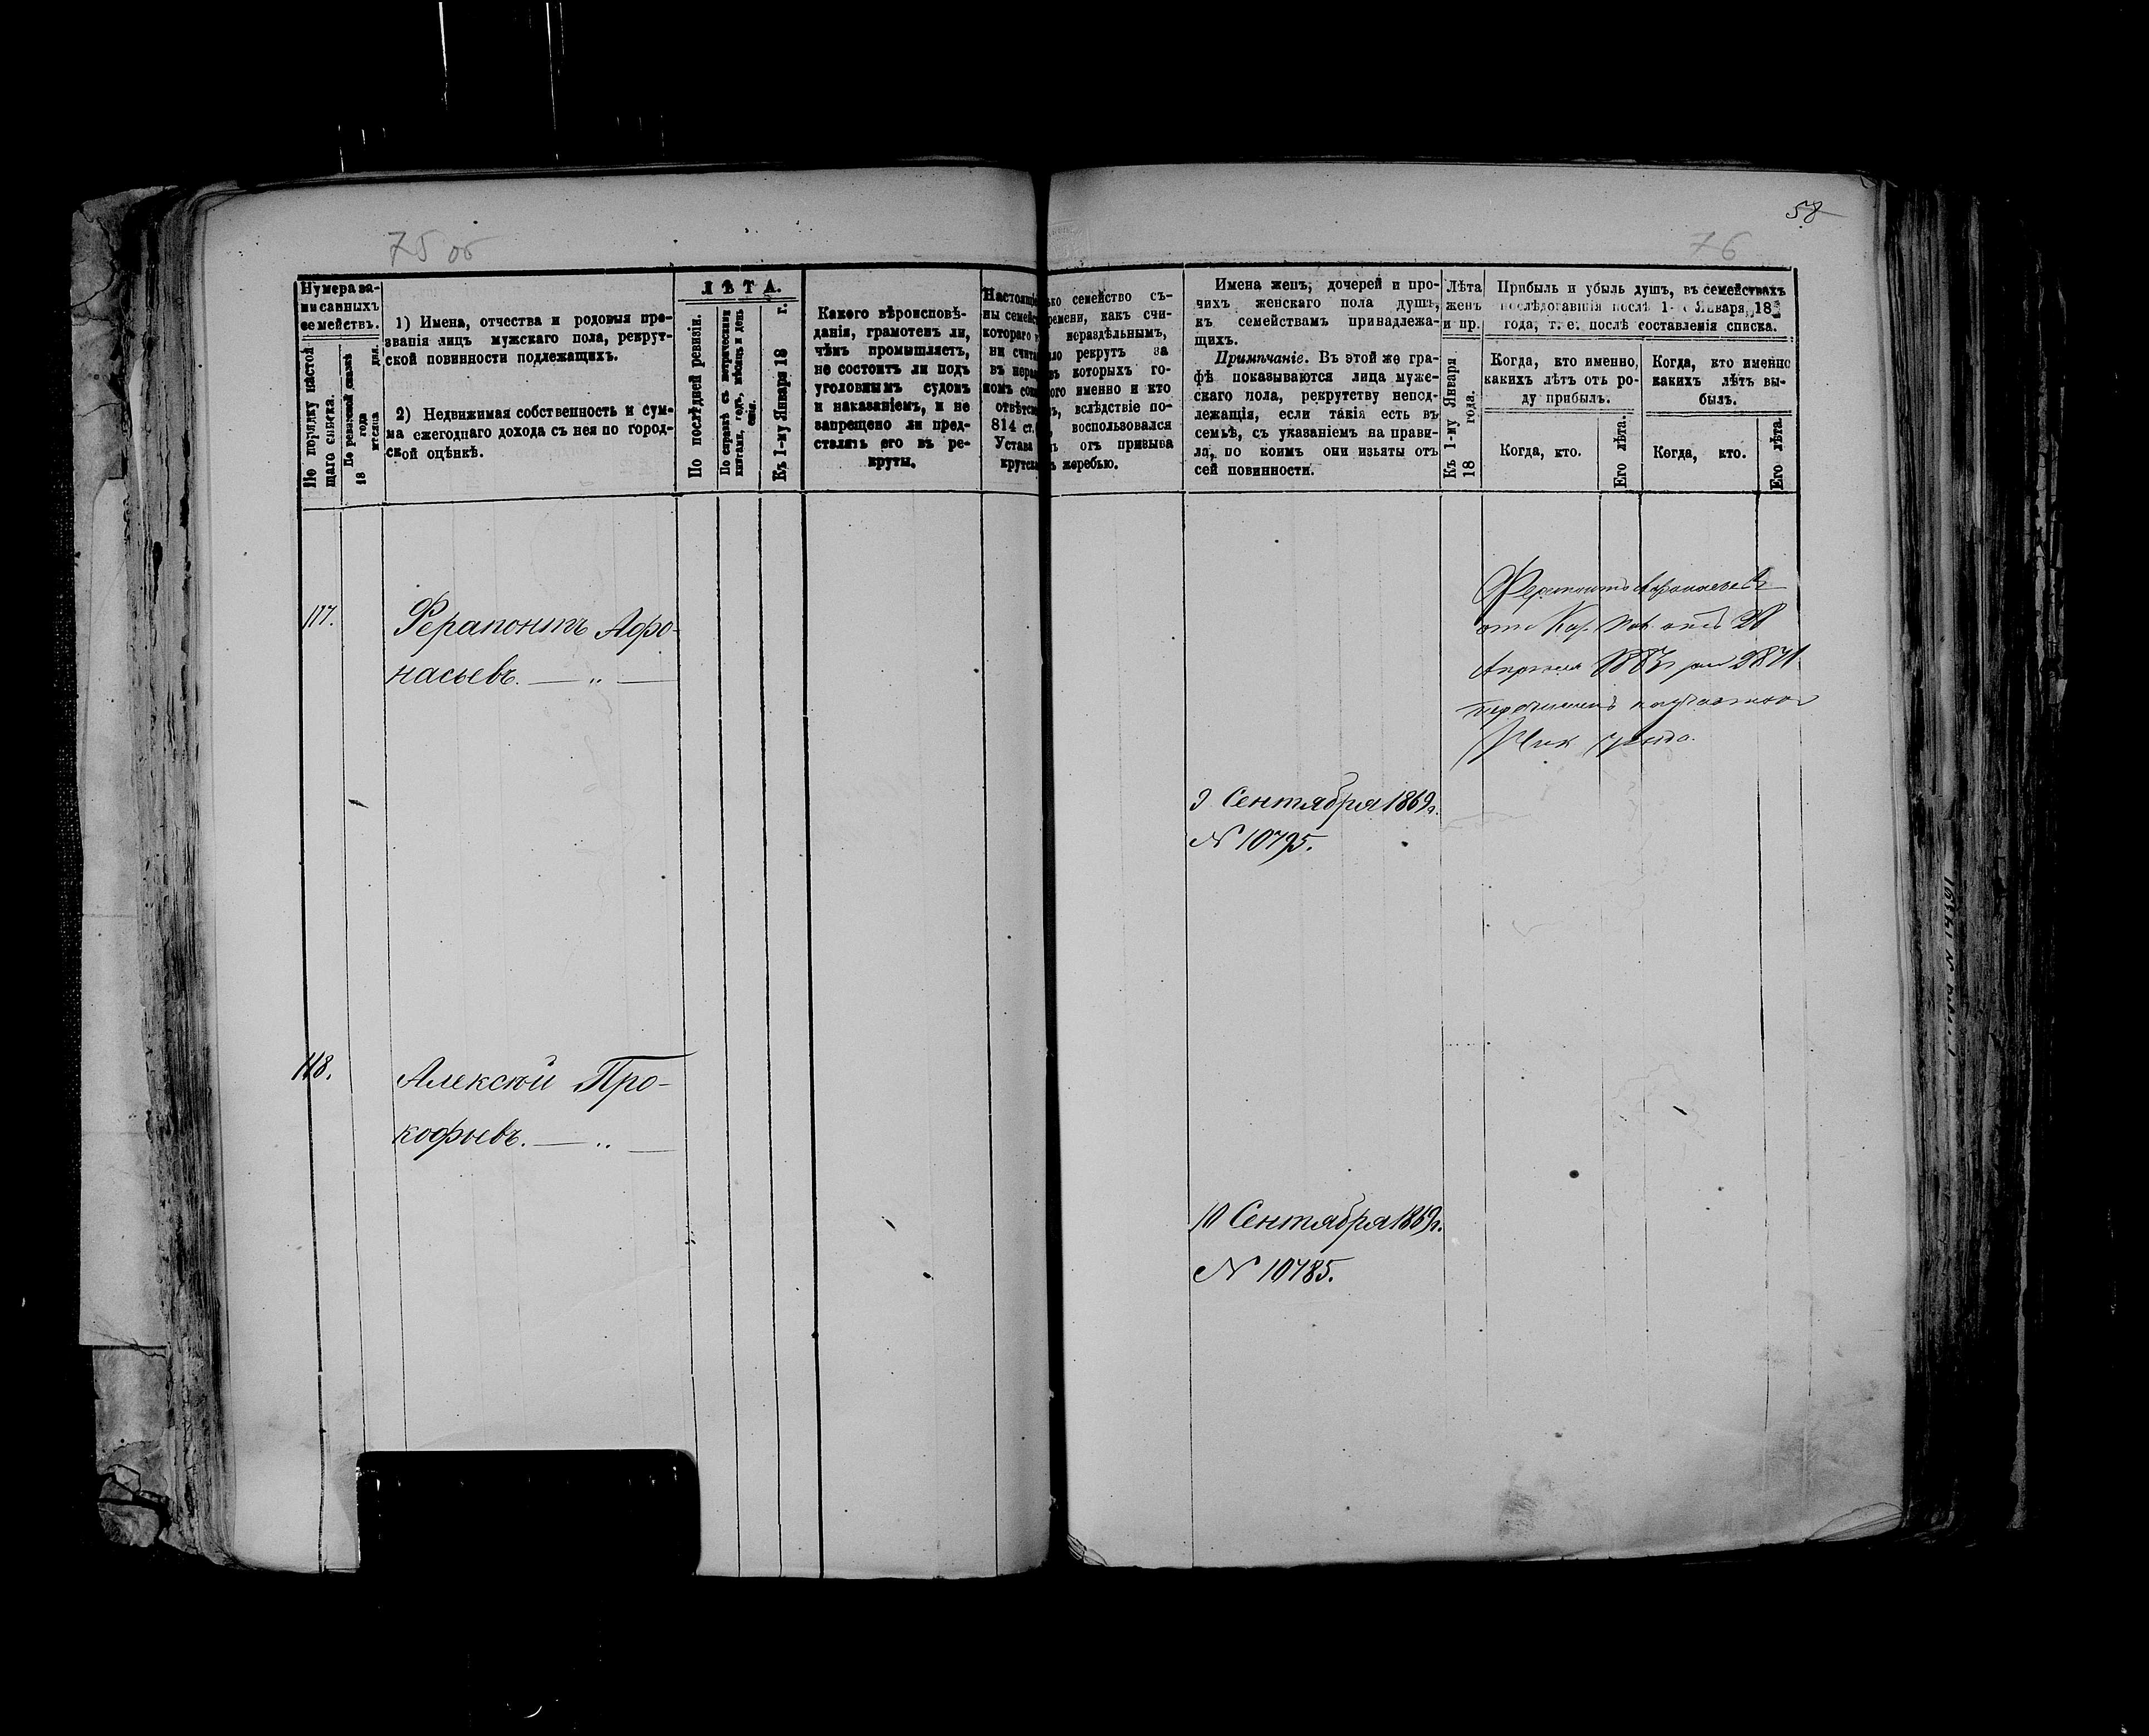 75 об
58
76
Нумера за-
писанныхъ
семействъ.
По порядку настоя-
щаго списка.
По ревизской сказкѣ
18 года
мѣсяца дня.
1) Имена, отчества и родовыя про-
званія лицъ мужскаго пола, рекрут-
ской повинности подлежащихъ.
2) Недвижимая собственность и сум-
ма ежегоднаго дохода съ нея по город-
ской оцѣнкѣ.
ЛѢТА.
По послѣдней ревизіи.
По справкѣ съ метрическими
книгами, годъ, мѣсяцъ и день
Къ 1-му Января 18 г.
Какого вѣроисповѣ-
данія, грамотенъ ли,
чѣмъ промышляетъ,
не состоитъ ли подъ
уголовнымъ судомъ
и наказаніемъ, и не
запрещено ли пред-
ставлять его въ ре-
круты.
ко семейство съ-
ремени, какъ счи-
нераздѣльнымъ,
ло рекрутъ за
въ которыхъ го-
ого именно и кто
ъ, вслѣдствіе по-
воспользовался
отъ призыва
жеребью.
Имена женъ, дочерей и про-
чихъ женскаго пола душъ,
къ семействамъ принадлежа-
щихъ.
Примѣчаніе. Въ этой же гра-
фѣ показываются лица муже-
скаго пола, рекрутству непод-
лежащія, если такія есть въ
семьѣ, съ указаніемъ на прави-
ла, по коимъ они изъяты отъ
сей повинности.
Лѣта
женъ
и пр.
Къ 1-му Января
18 года.
Прибыль и убыль душъ, въ семействахъ
послѣдовавшія послѣ 1-го Января, 18
года, т. е. послѣ составленія списка.
Когда, кто именно,
какихъ лѣтъ отъ ро-
ду прибылъ.
Когда, кто именно
какихъ лѣтъ вы-
былъ.
Когда, кто.
Его лѣта.
Когда, кто.
Его лѣта.
117.
Ферапонтъ Афо-
насьевъ. — „ —
Ферапонтъ Афонасьевъ
Апрѣля
9 Сентября 1869 г.
N 10795.
118.
Алексѣй Про-
кофьевъ. — „ —
10 Сентября 1869 г.
N 10785.